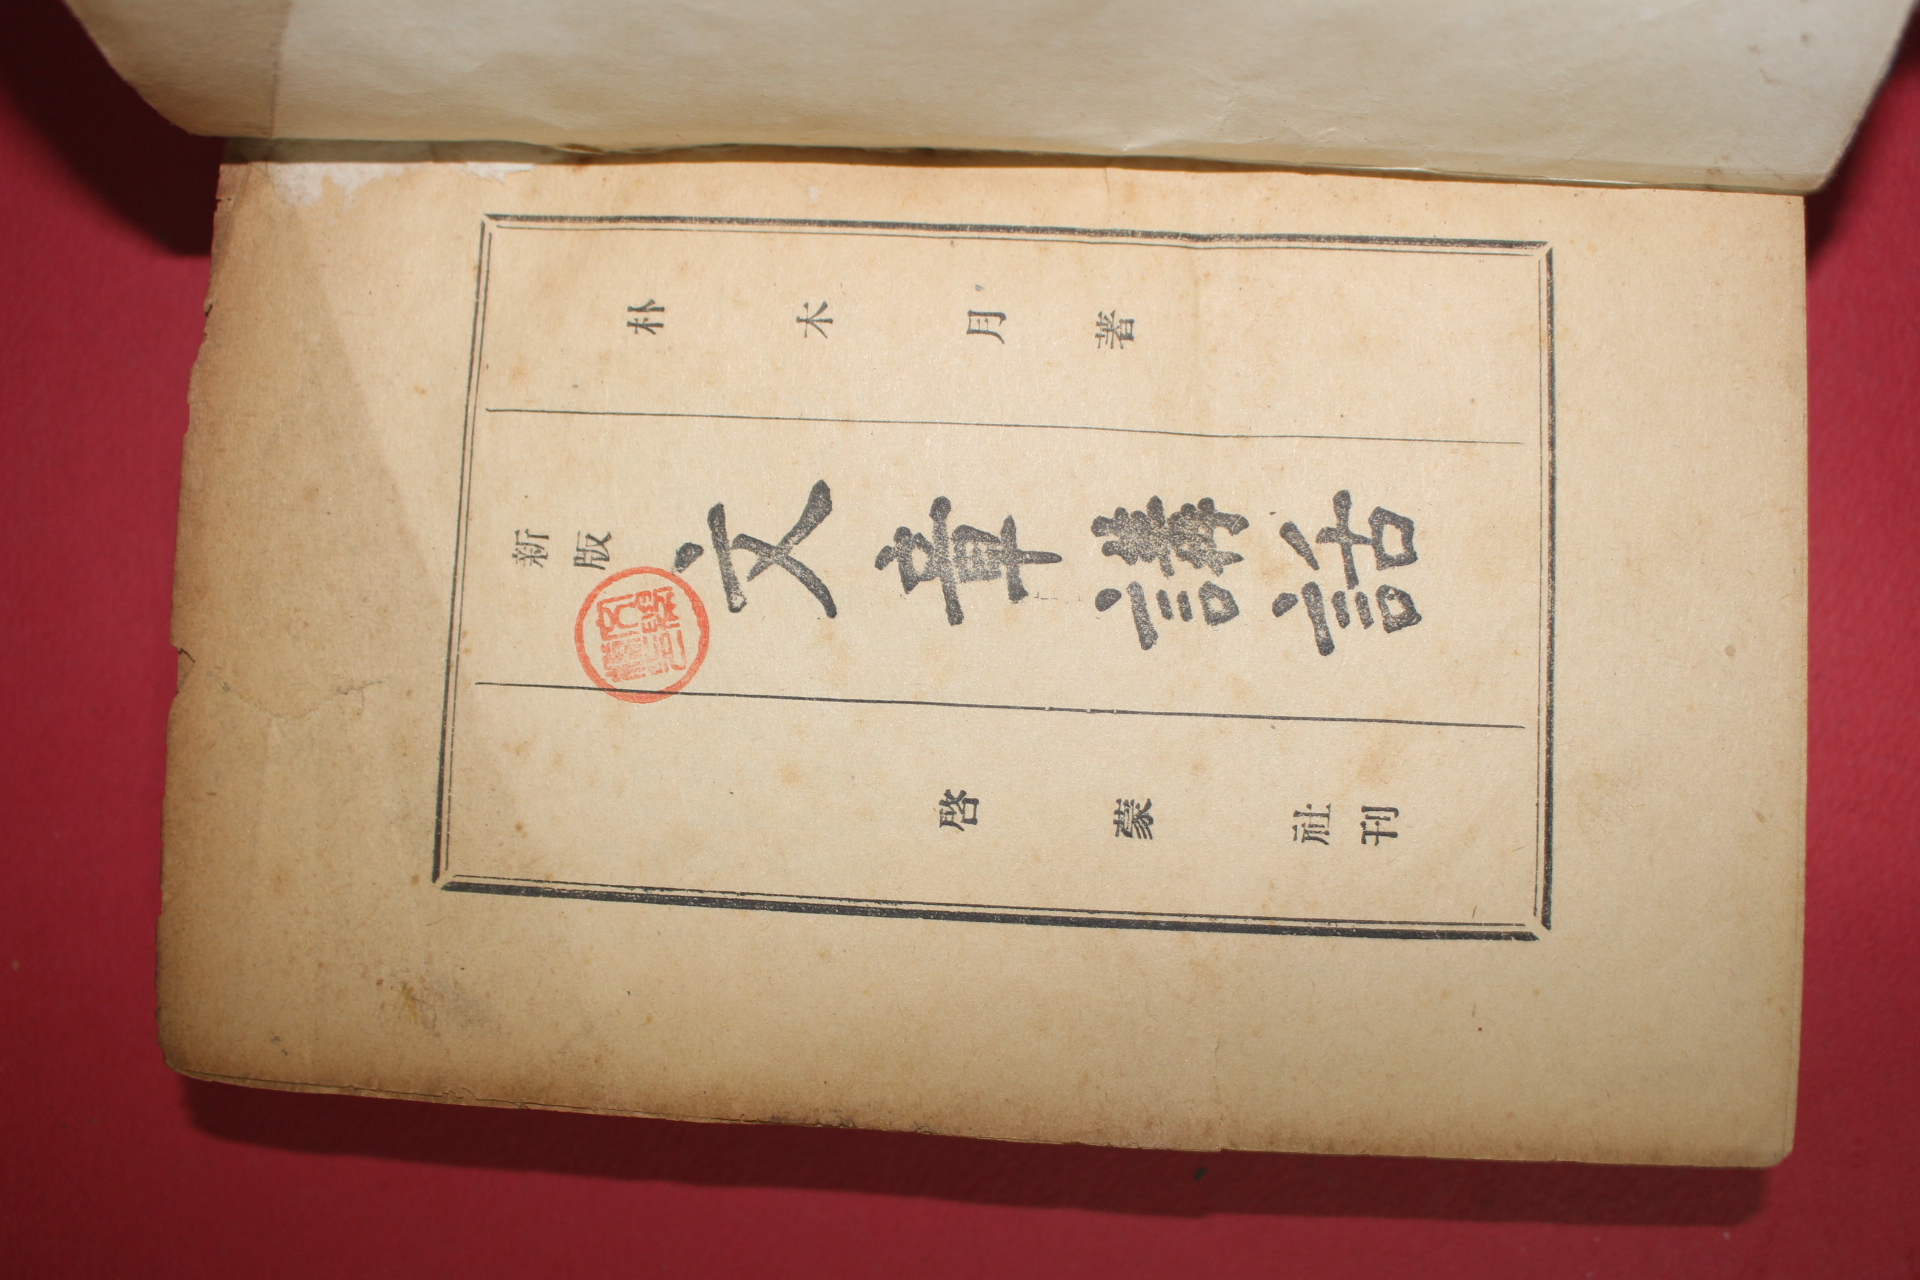 朴木月著
新版 文章講話
啓蒙社刊